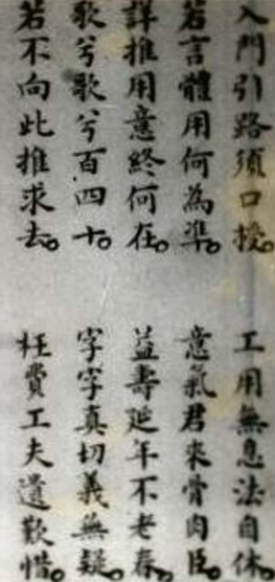 入門引路須口授。工用無息法自休。
若言體用何為準。意氣君來骨肉臣。
詳推用意終何在。益壽延年不老春。
歌兮歌兮百四十。字字真切義無疑。
若不向此推求去。枉費工夫遺歎惜。